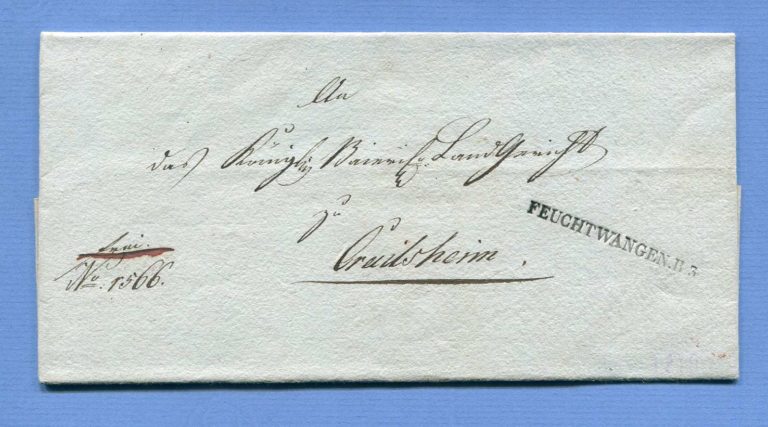 An
das Königlich Baierische LandGericht
zu
Crailsheim.
frei.
No. 1566.
FEUCHTWANGEN.R.3